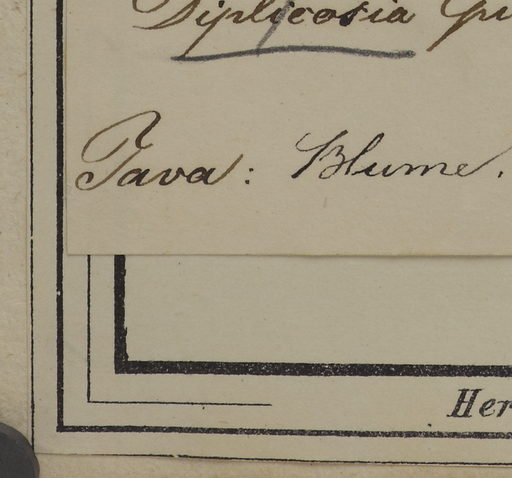 Diplycosia
Java: Blume.
Her